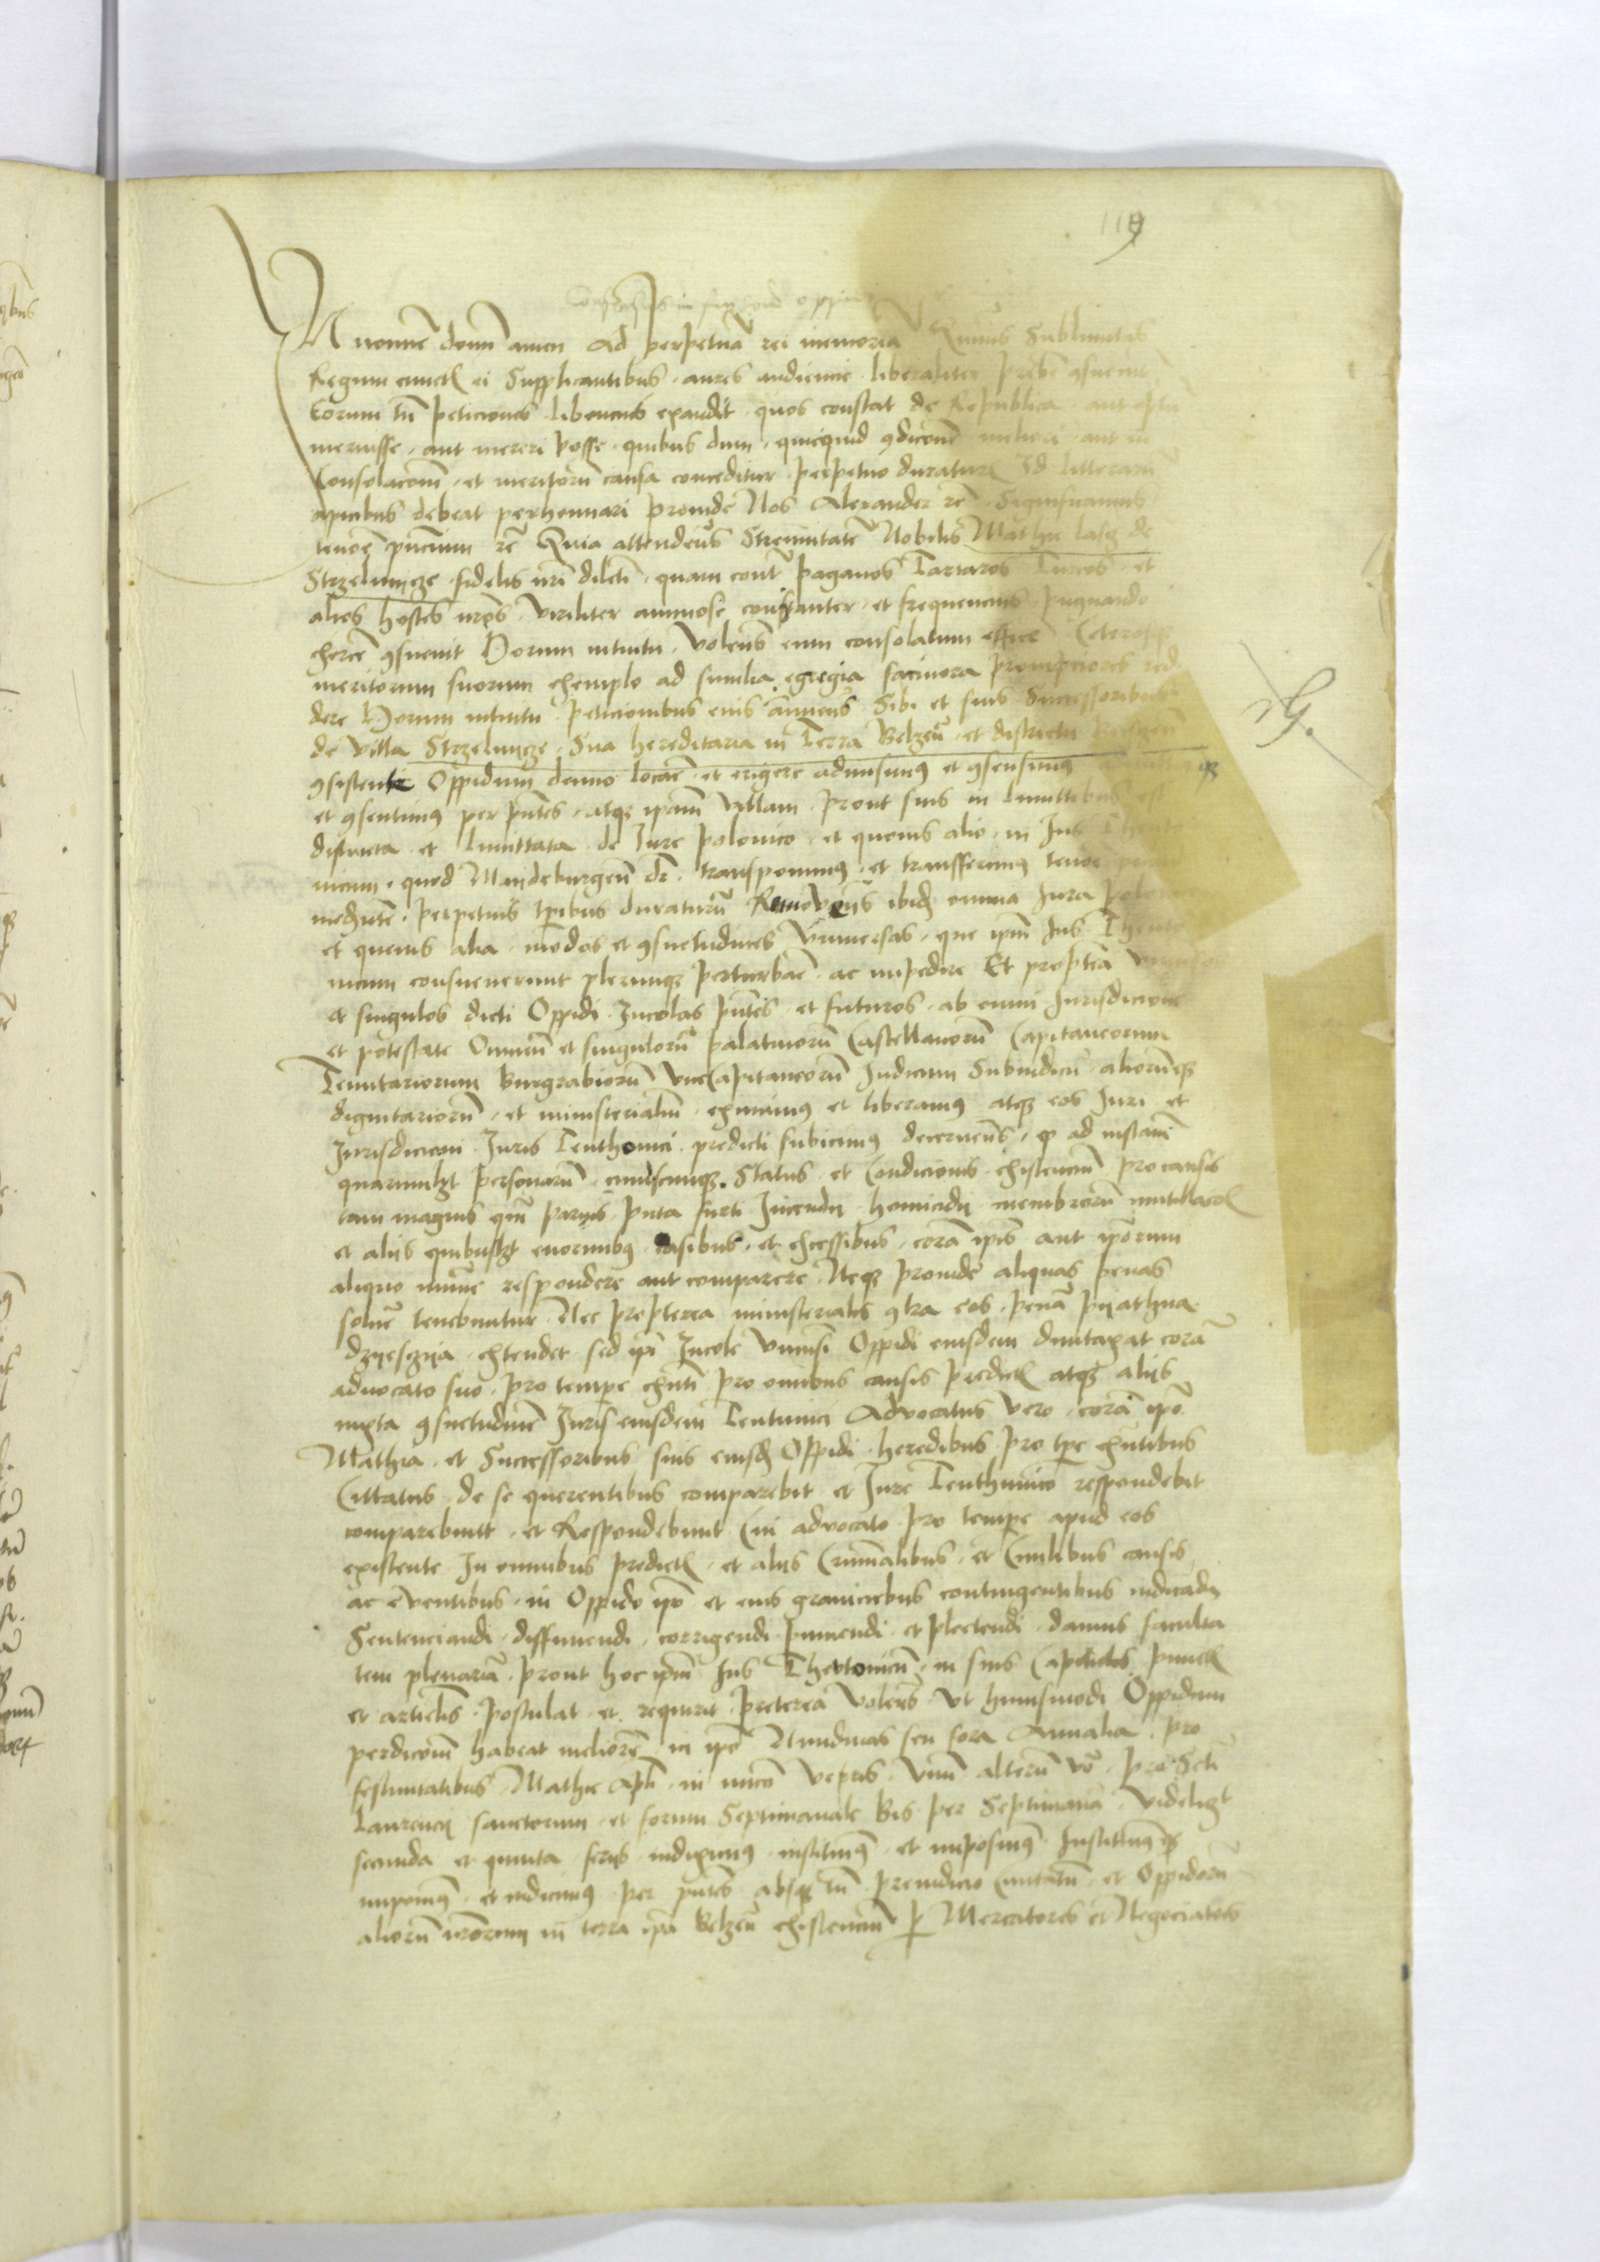 119
Consensus in oppid
In nomine domini amen Ad perpetuã rei memoriã Quãuis Sublimitas
Regum cunctis ei Supplicantibus aures audiencie liberaliter prebere ꝯsueuit
Eorum tñ peticiones libencius exaudit quos constat de Republica aut
meruisse aut mereri posse quibus dum quicquid ꝯdicione meliori aut in
Consolacionem et meritorum causa conceditur perpetuo duraturum Id litterarum
apicibus debeat perhennari proinde Nos Alexander rẽ Significamus
tenore pñcium rẽ Quia attendentes Strenuitatẽ Nobilis Mathie Lasch de
Strzelmicze fidelis nrĩ dilcti quam contra paganos Tartaros Turcos et
alios hostes nros viriliter animose constanter et frequencius pugnando
exercere ꝯsueuit Horum intuitu volentes eum consolatum efficere Ceterosqꝫ
meritorum suorum exemplo ad similia egregia facinora prompciores red
dere Horum intuitu peticionibus eius annuentes Sibi et suis Successoribus
de villa Strzelmicze Sua hereditaria in Terra Belzeñ et districtu
ꝯsistente Oppidum denuo locare et erigere admisimus et ꝯsensimus
et ꝯsentimus per pñtes atqꝫ ipam villam prout suis in limittibus est
distincta et limittata de Iure polonico et quouis alio in Ius Theuto
nicum quod Maideburgeñ dr̃ transponimus et transfferimus tenore
mediante perpetuis tꝑibus duraturũ Remouentes ibidẽ omnia Iura polonica
et queuis alia modos et ꝯsuetudines Vniuersas que ipm Ius Theuto
nicum consueuerunt plerumqꝫ perturbare ac impedire Et propterea
et singulos dicti Oppidi Incolas pñtes et futuros ab omni Iurisdicione
et potestate Omniũ et singulorũ palatinorũ Castellanorũ Capitaneorum
Tenutariorum Burgrabiorũ viceCapitaneorũ Iudicum Subiudicũ aliorũqꝫ
dignitariorũ et ministerialiũ eximimus et liberamus atqꝫ eos Iuri et
Iurisdicioni Iuris Teuthonici predicti subicimus decernentes ꝙ ad instanciã
quarumlꝫt personarũ cuiuscumqꝫ Status et Condicionis existencium pro causis
tam magnis qm̃ paruis puta furti Incendii homicidii membrorũ mutillacõis
et aliis quibuslꝫt enormibꝫ casibus et excessibus corã ipis aut ipõrum
aliquo minime respondere aut comparere Neqꝫ proinde aliquas penas
soluere tenebuntur Nec propterea ministerialis ꝯtra eos penã pyathna
dzyesczya extendet sed ipi Incole Vniuersi Oppidi eiusdem dumtaxat corã
aduocato suo pro tempore existenti pro omnibus causis predictis atqꝫ aliis
iuxta ꝯsuetudinẽ Iuris eiusdem Teutunici Aduocatus vero corã ipo
Mathia et Successoribus suis eiusdẽ Oppidi heredibus pro tꝑe existentibus
Cittatus de se querentibus comparebit et Iure Teuthunico respondebit
comparebuntt et Respondebunt Cui aduocato pro tempore apud eos
existente In omnibus predictis et aliis Criminalibus et Ciuilibus causis
ac euentibus in Oppido ipo et eius graniciebus contingentibus iudicadi
Sentenciandi diffiniendi corrigendi puniendi et plectendi damus faculta
tem plenariã prout hoc ipm Ius Thevtonicũ in suis Capitulis punctis
et articulis postulat et requirit Preterea volentes Vt huiusmodi Oppidum
perdicionẽ habeat meliorẽ in ipo Nundinas seu fora Annalia pro
festiuitatibus Mathie apli vnũ alterũ vo pro Scti
Laurencii sanctorum et forum Septimanale Bis per Septimanã Videlicꝫt
secunda et quinta feriis indiximꝫ instituimꝫ et imposuimꝫ Instituimꝫqꝫ
imponimꝫ et indicimus per pñtes absqꝫ tñ preiudicio Ciuitatũ et Oppidorũ
aliorũ nrõrum in terra ipa Belzeñ existencium ꝙ Mercatores et Negociatores